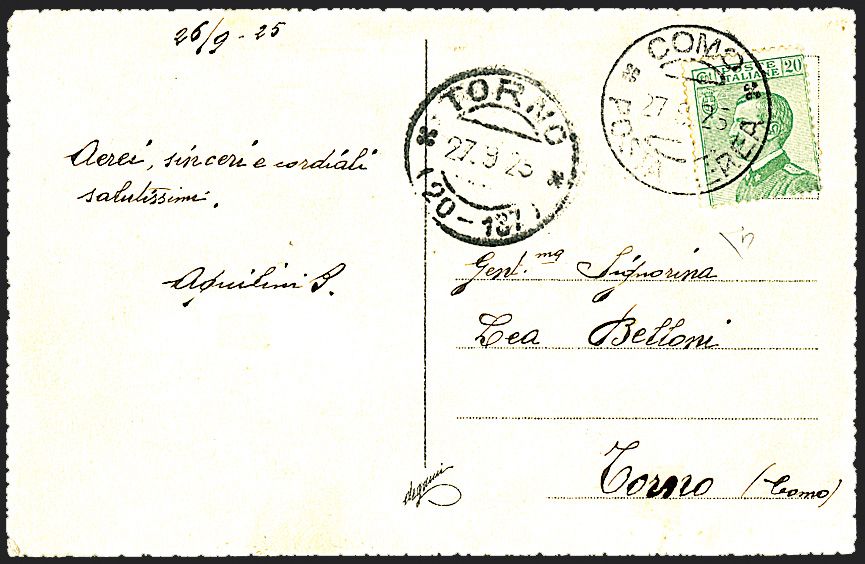 26/9 - 25
Aerei, sinceri e cordiali
salutissimi.
Aquilini S.
TORNO
27.9.25
(20-187)
COMO
27.9.25
POSTA AEREA
POSTE
ITALIANE 20
Gent.ma Signorina
Lea Belloni
Torno (Como)
degami